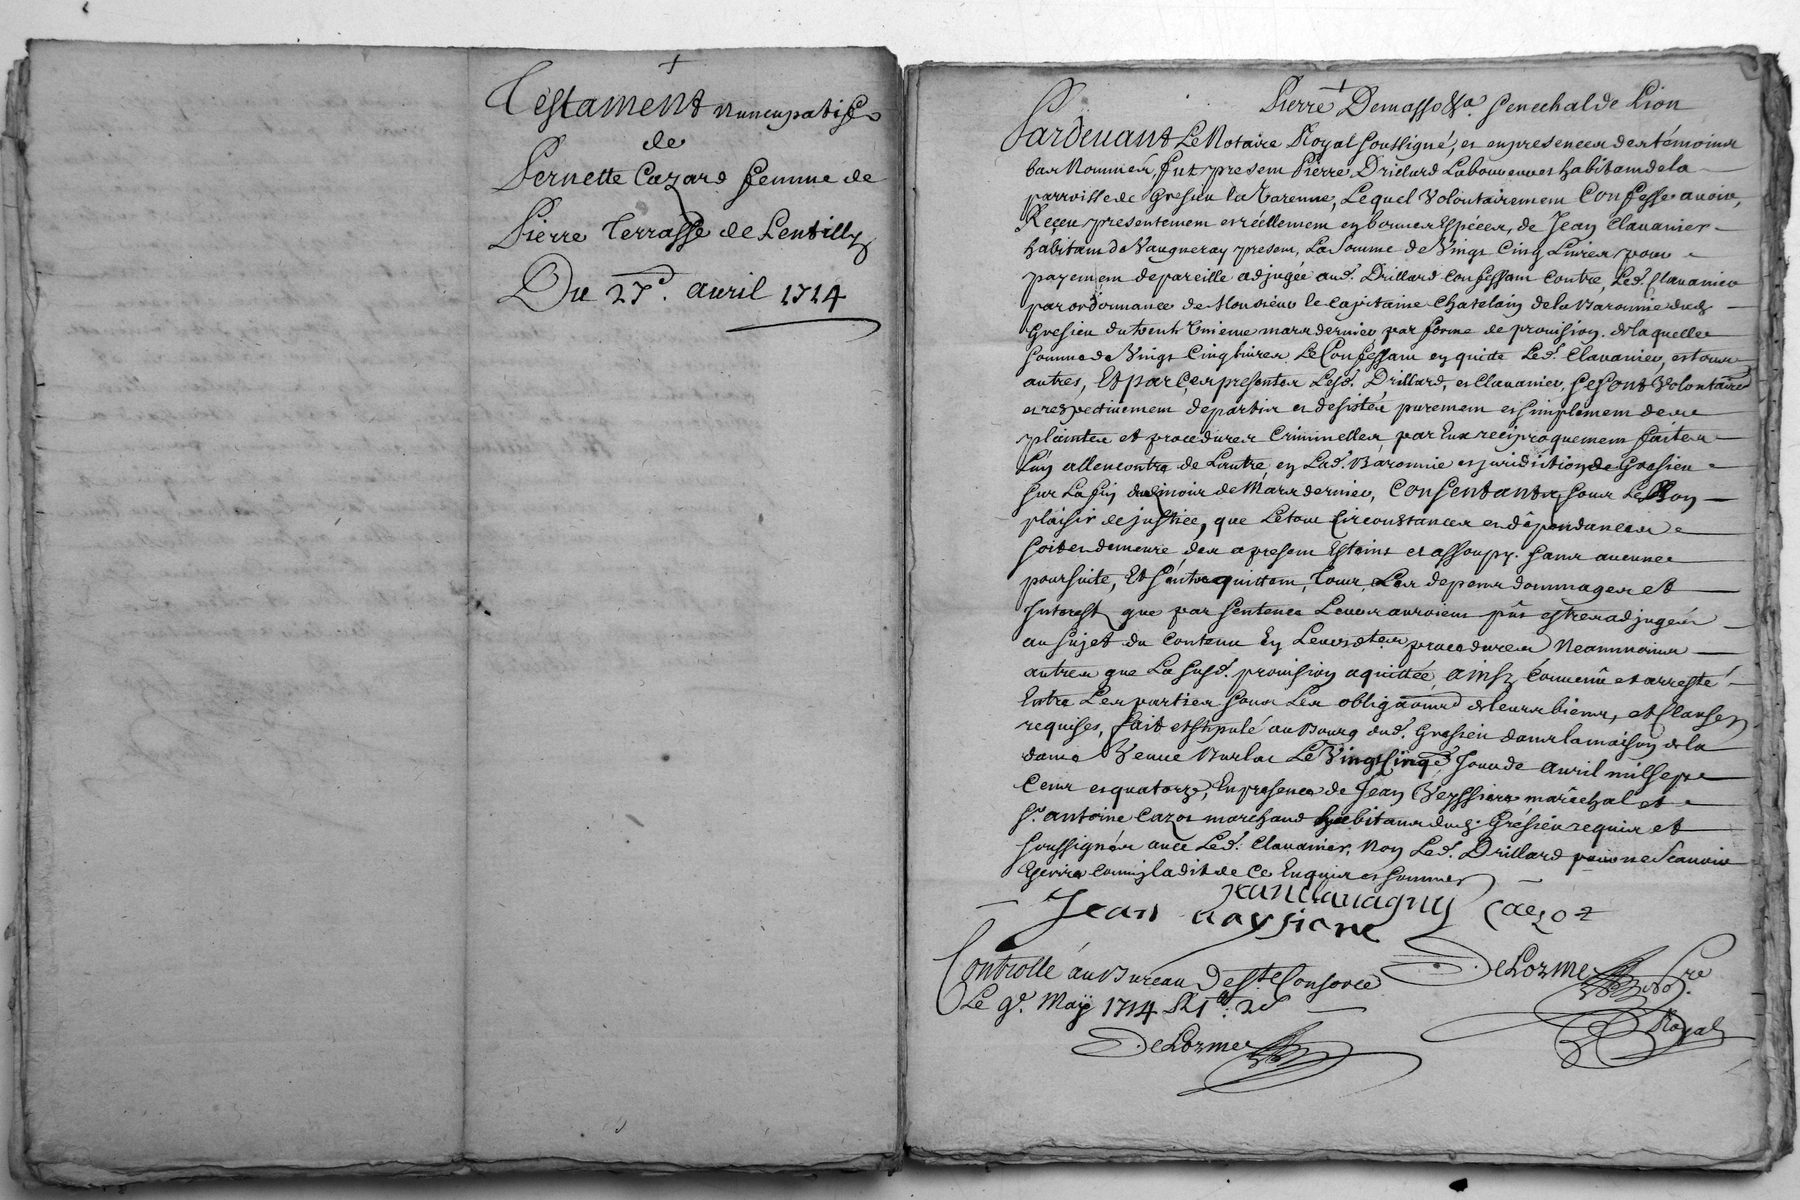 Testament nuncupatif
de
Pernette Cazard femme de
Pierre Terrasse de Lentilly
Du 27e. avril 1714
Pierre Demasso &a. senechal de Lion
Pardevant Le Notaire Royal soussigné, et en presence des témoins
bas Nommés, fut present Pierre Drillard Laboureur et habitant de la
parroisse de Gresieu la Varenne, Lequel Volontairement Confesse avoir
Reçeu presentement et réellement en bonnes Espéces, de Jean Clavanier
habitant de Vaugneray present, La somme de Vingt Cinq Livres pour
payement de pareille adjugée aud. Drillard Confessant Contre, Led. Clavanier
par ordonnance de Monsieur le Capitaine Chatelain de la Baronnie dud.
Gresieu du trente Unieme mars dernier par forme de provision. de laquelle
somme de Vingt Cinq livres Le Confessant en quitte Led. Clavanier, et tous
autres, Et par Ces presentes Lesd. Drillard, et Clavanier, se sont Volontaire
et respectivement departis et desistés purement et simplement de
plaintes et procedures Criminelles par Eux reciproquement faites
L'un allencontre de Lautre, en Lad. Baronnie et juridiction de Gresieu
sur La fin du mois de Mars dernier, Consentants sous Le Bon
plaisir de justice, que Letout Circonstances et dépendances
soit et demeure des apresent Esteint et assoupy. sans aucune
poursuite, Et s'entrequittent, tous Les depens dommages et
Interest que par sentence Leurs auroient pûs estre adjugés
au sujet du Contenu En Leursdtes procedures Neanmoins
autres que La susd. provision aquittée, ainsy Convenû et arresté
Entre Les parties sous Les obligaons de leurs biens, et Clauses
requises, fait et stipulé au Bourg dud. Gresieu dans la maison de la
dame Veuve Burlat Le Vingt Cinqe Jour de avril mil sept
Cents et quatorze, En presence de Jean Veyssiere maréchal et
sr. antoine Cazot marchand habitans dud. Grésieu requis et
soussignés avec Led. Clavanier, Non Led. Drillard pour ne scavoir
Escrire Comme il a dit de Ce Enquis et sommé
Jean Clavagniy Caezot
Jean vaysiere
DeLorme Nore
Royal
Controllé au Bureau De Ste Consorce
Le 9e. May 1714
DeLorme